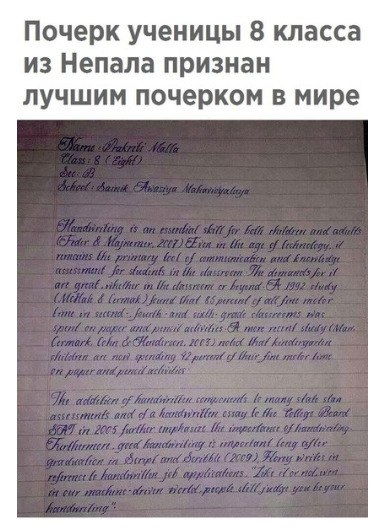 Почерк ученицы 8 класса
из Непала признан
лучшим почерком в мире
Name : Prakriti Malla
Class : 8 ( Eight )
Sec : 'B'
School : Sainik Awasiya Mahavidyalaya
Handwriting is an essential skill for both children and adults
(Feder & Majnemer, 2007) Even in the age of technology, it
remains the primary tool of communication and knowledge
assessment for students in the classroom. The demands for it
are great, whether in the classroom or beyond. A 1992 study
(McHale & Cermak) found that 85 percent of all fine motor
time in second-, fourth- and sixth- grade classrooms was
spent on paper and pencil activities. A more recent study (Marr,
Cermark, Cohn & Henderson, 2003) noted that kindergarten
children are now spending 42 percent of their fine motor time
on paper and pencil activities.
The addition of handwritten components to many state
assessments and of a handwritten essay to the College Board
SAT in 2005 further emphasize the importance of handwriting.
Furthermore, good handwriting is important long after
graduation in Script and Scribble (2009), Florey writes in
reference to handwritten job applications, "Like it or not, even
in our machine-driven world, people still judge you by your
handwriting".